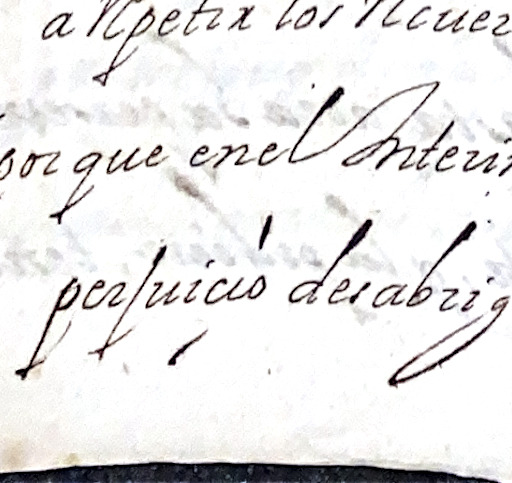 a Rpetir los Rcuer
porque enel Interin
perjuicio desabrig